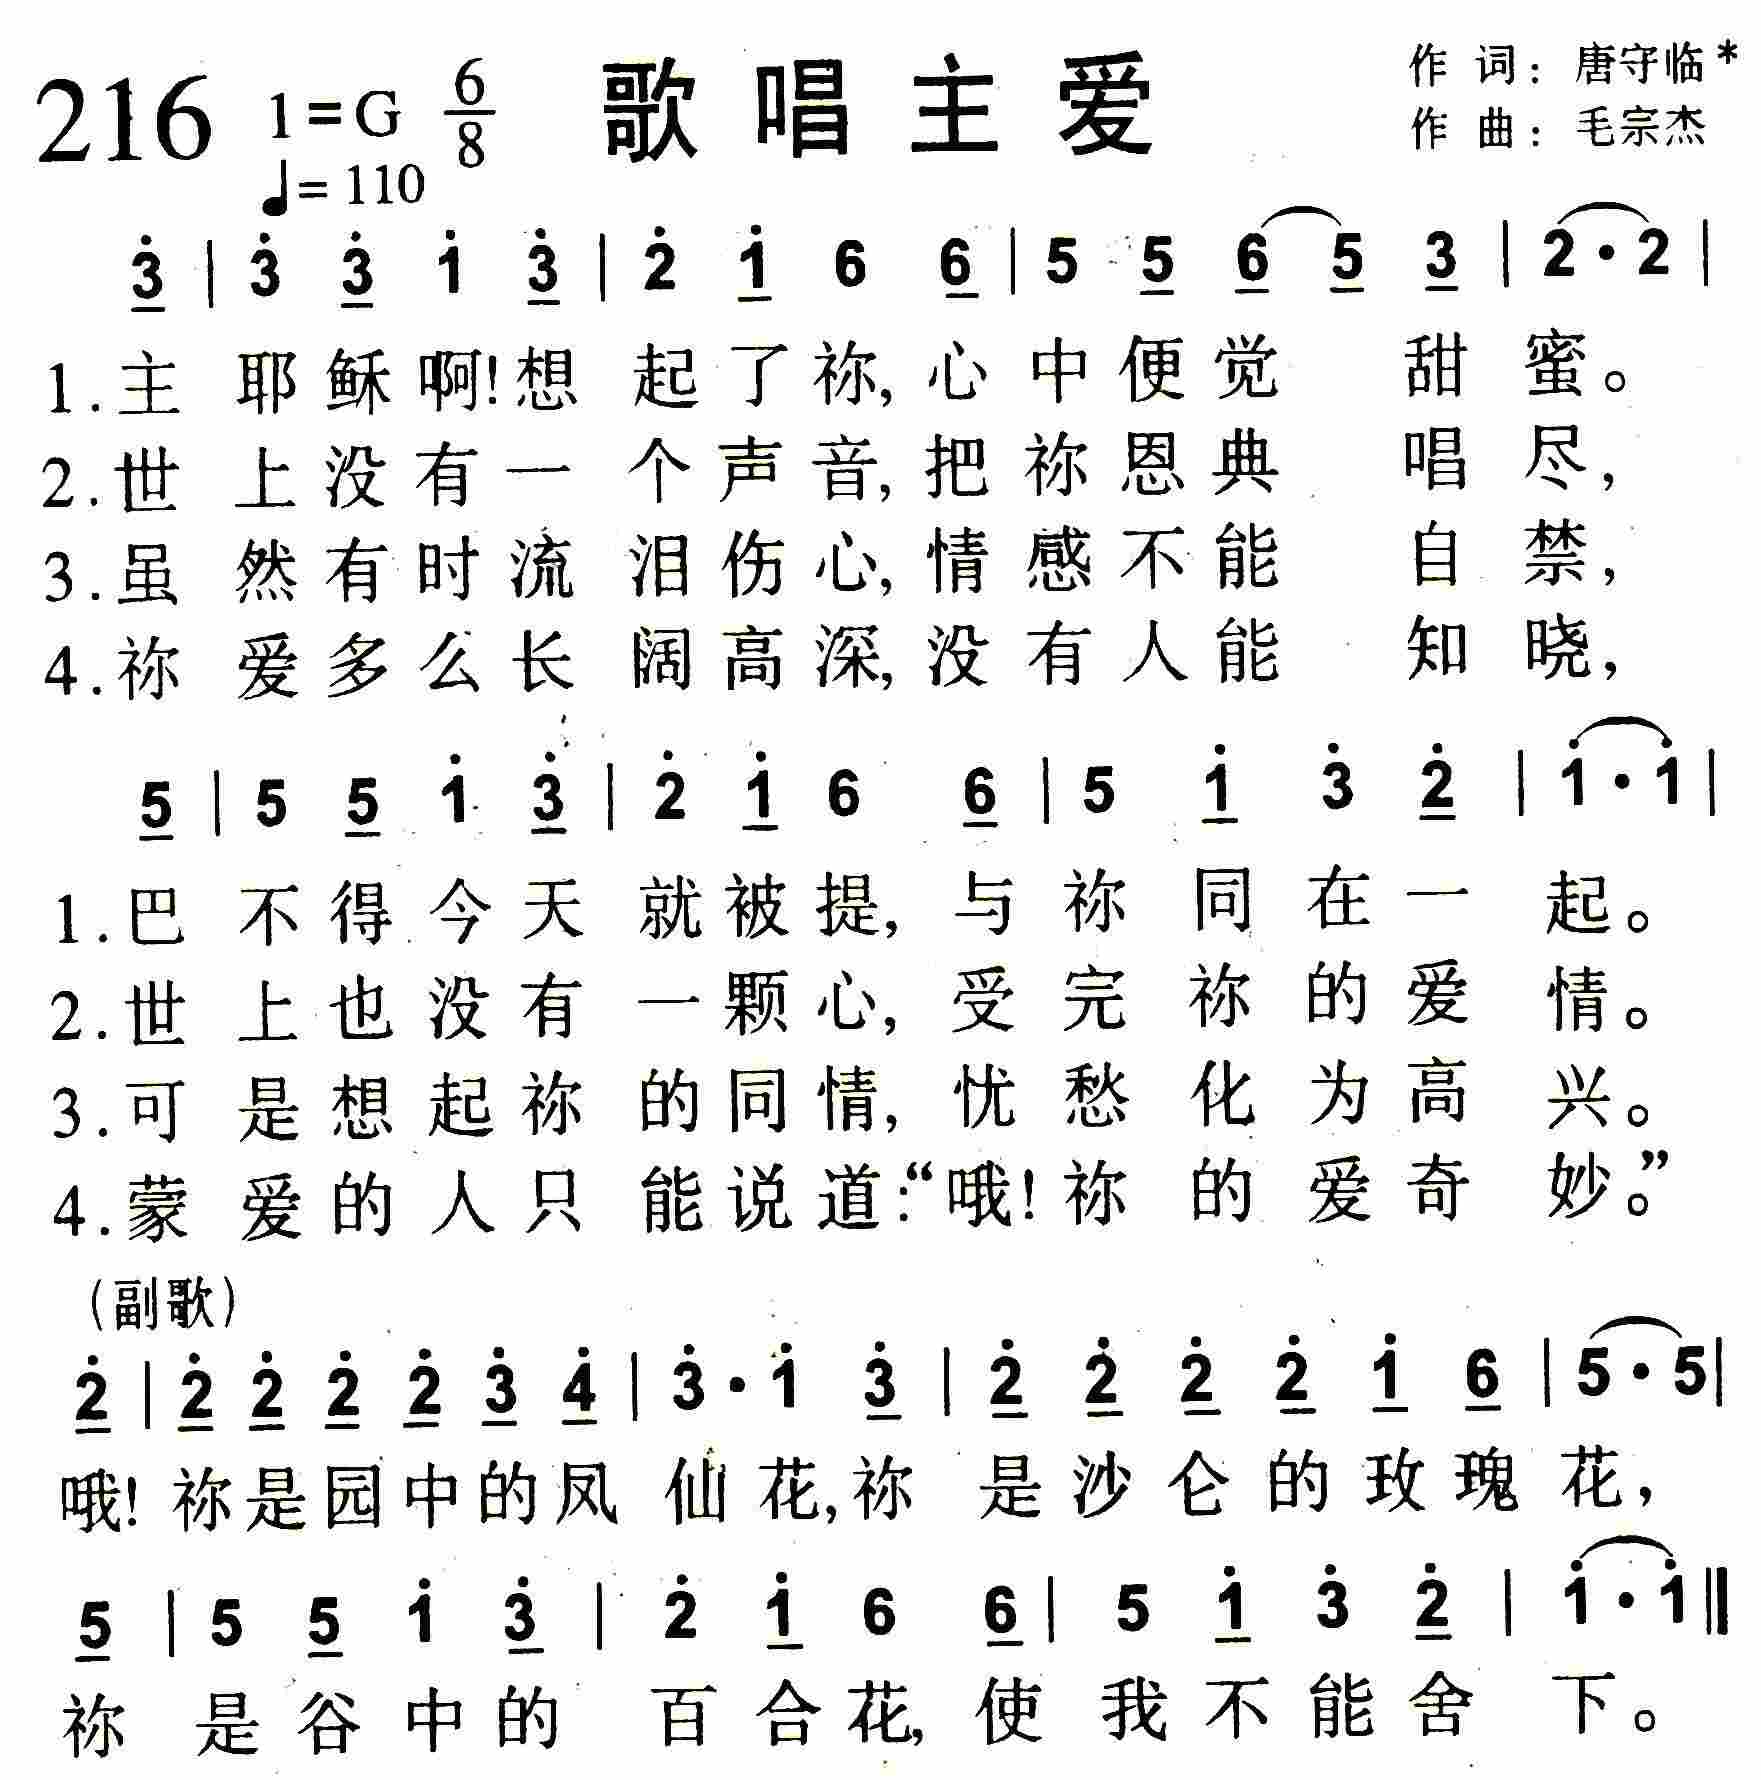 216 1=G 6/8 歌唱主爱 作词：唐守临*
♩=110 作曲：毛宗杰
3̇ | 3̇ 3̇ 1̇ 3̇ | 2̇ 1̇ 6 6 | 5 5 6 5 3 | 2·2 |
1.主耶稣啊!想起了祢,心中便觉甜蜜。
2.世上没有一个声音,把祢恩典唱尽,
3.虽然有时流泪伤心,情感不能自禁,
4.祢爱多么长阔高深,没有人能知晓,
5 | 5 5 1̇ 3̇ | 2̇ 1̇ 6 6 | 5 1̇ 3̇ 2̇ | 1̇·1̇ |
1.巴不得今天就被提,与祢同在一起。
2.世上也没有一颗心,受完祢的爱情。
3.可是想起祢的同情,忧愁化为高兴。
4.蒙爱的人只能说道:“哦!祢的爱奇妙。”
(副歌)
2̇ | 2̇ 2̇ 2̇ 2̇ 3̇ 4̇ | 3̇·1̇ 3̇ | 2̇ 2̇ 2̇ 2̇ 1̇ 6 | 5·5 |
哦!祢是园中的凤仙花,祢是沙仑的玫瑰花,
5 | 5 5 1̇ 3̇ | 2̇ 1̇ 6 6 | 5 1̇ 3̇ 2̇ | 1̇·1̇ ‖
祢是谷中的百合花,使我不能舍下。